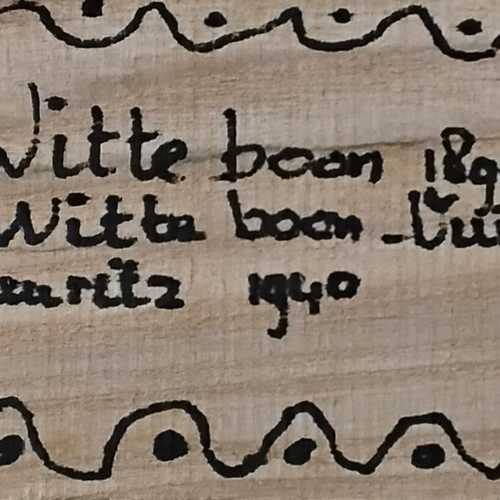 Witte boon 189
Witte boon - Lüü
euritz 1940